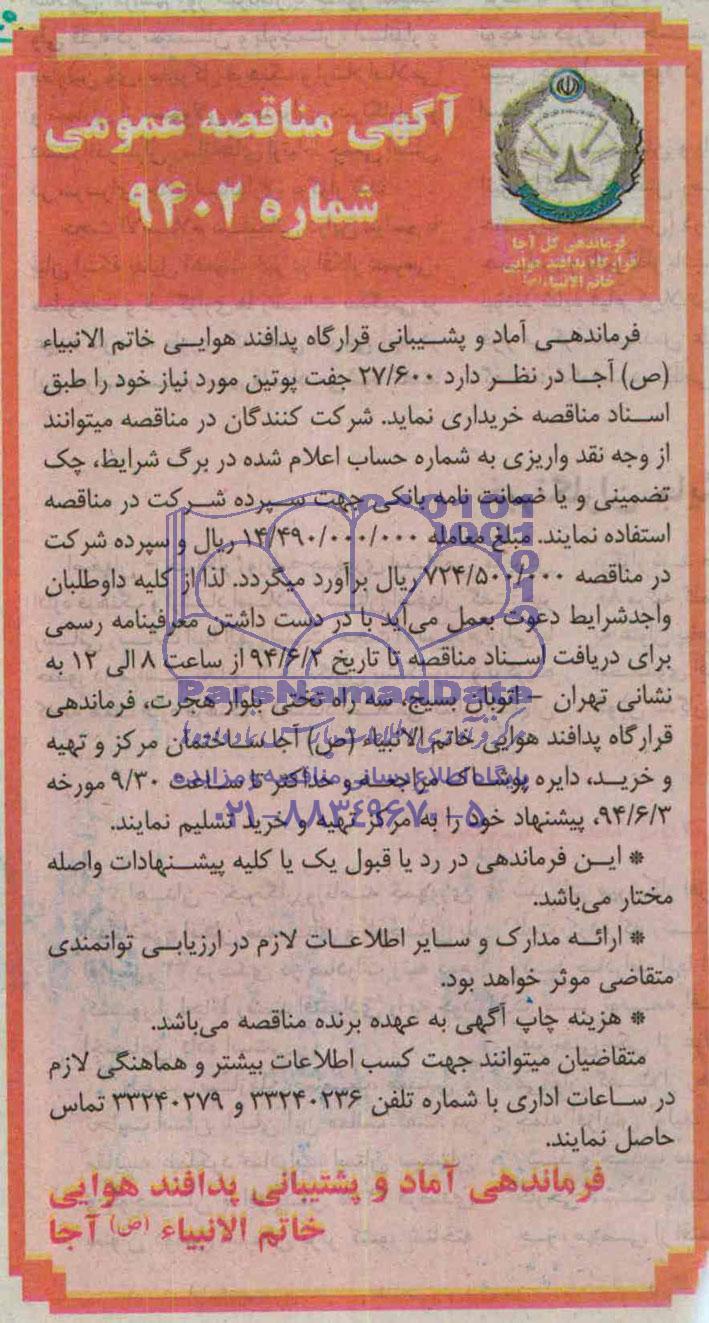 آگهی مناقصه عمومی
شماره ۹۴۰۲
فرماندهی کل آجا
قرارگاه پدافند هوایی
خاتم الانبیاء (ص)
فرماندهی آماد و پشتیبانی قرارگاه پدافند هوایی خاتم الانبیاء
(ص) آجا در نظر دارد ۲۷/۶۰۰ جفت پوتین مورد نیاز خود را طبق
اسناد مناقصه خریداری نماید. شرکت کنندگان در مناقصه میتوانند
از وجه نقد واریزی به شماره حساب اعلام شده در برگ شرایط، چک
تضمینی و یا ضمانت نامه بانکی جهت سپرده شرکت در مناقصه
استفاده نمایند. مبلغ معامله ۱۴/۴۹۰/۰۰۰/۰۰۰ ریال و سپرده شرکت
در مناقصه ۷۲۴/۵۰۰/۰۰۰ ریال برآورد میگردد. لذا از کلیه داوطلبان
واجدشرایط دعوت بعمل می‌آید با در دست داشتن معرفینامه رسمی
برای دریافت اسناد مناقصه تا تاریخ ۹۴/۶/۲ از ساعت ۸ الی ۱۲ به
نشانی تهران – اتوبان بسیج، سه راه تختی بلوار هجرت، فرماندهی
قرارگاه پدافند هوایی خاتم الانبیاء (ص) آجا ساختمان مرکز و تهیه
و خرید، دایره پوشاک مراجعه و حداکثر تا ساعت ۹/۳۰ مورخه
۹۴/۶/۳، پیشنهاد خود را به مرکز تهیه و خرید تسلیم نمایند.
* این فرماندهی در رد یا قبول یک یا کلیه پیشنهادات واصله
مختار می‌باشد.
* ارائه مدارک و سایر اطلاعات لازم در ارزیابی توانمندی
متقاضی موثر خواهد بود.
* هزینه چاپ آگهی به عهده برنده مناقصه می‌باشد.
متقاضیان میتوانند جهت کسب اطلاعات بیشتر و هماهنگی لازم
در ساعات اداری با شماره تلفن ۳۳۲۴۰۲۳۶ و ۳۳۲۴۰۲۷۹ تماس
حاصل نمایند.
فرماندهی آماد و پشتیبانی پدافند هوایی
خاتم الانبیاء (ص) آجا
ParsNamadData
پایگاه اطلاع رسانی مناقصه و مزایده
۰۲۱-۸۸۳۴۹۶۷۰-۵